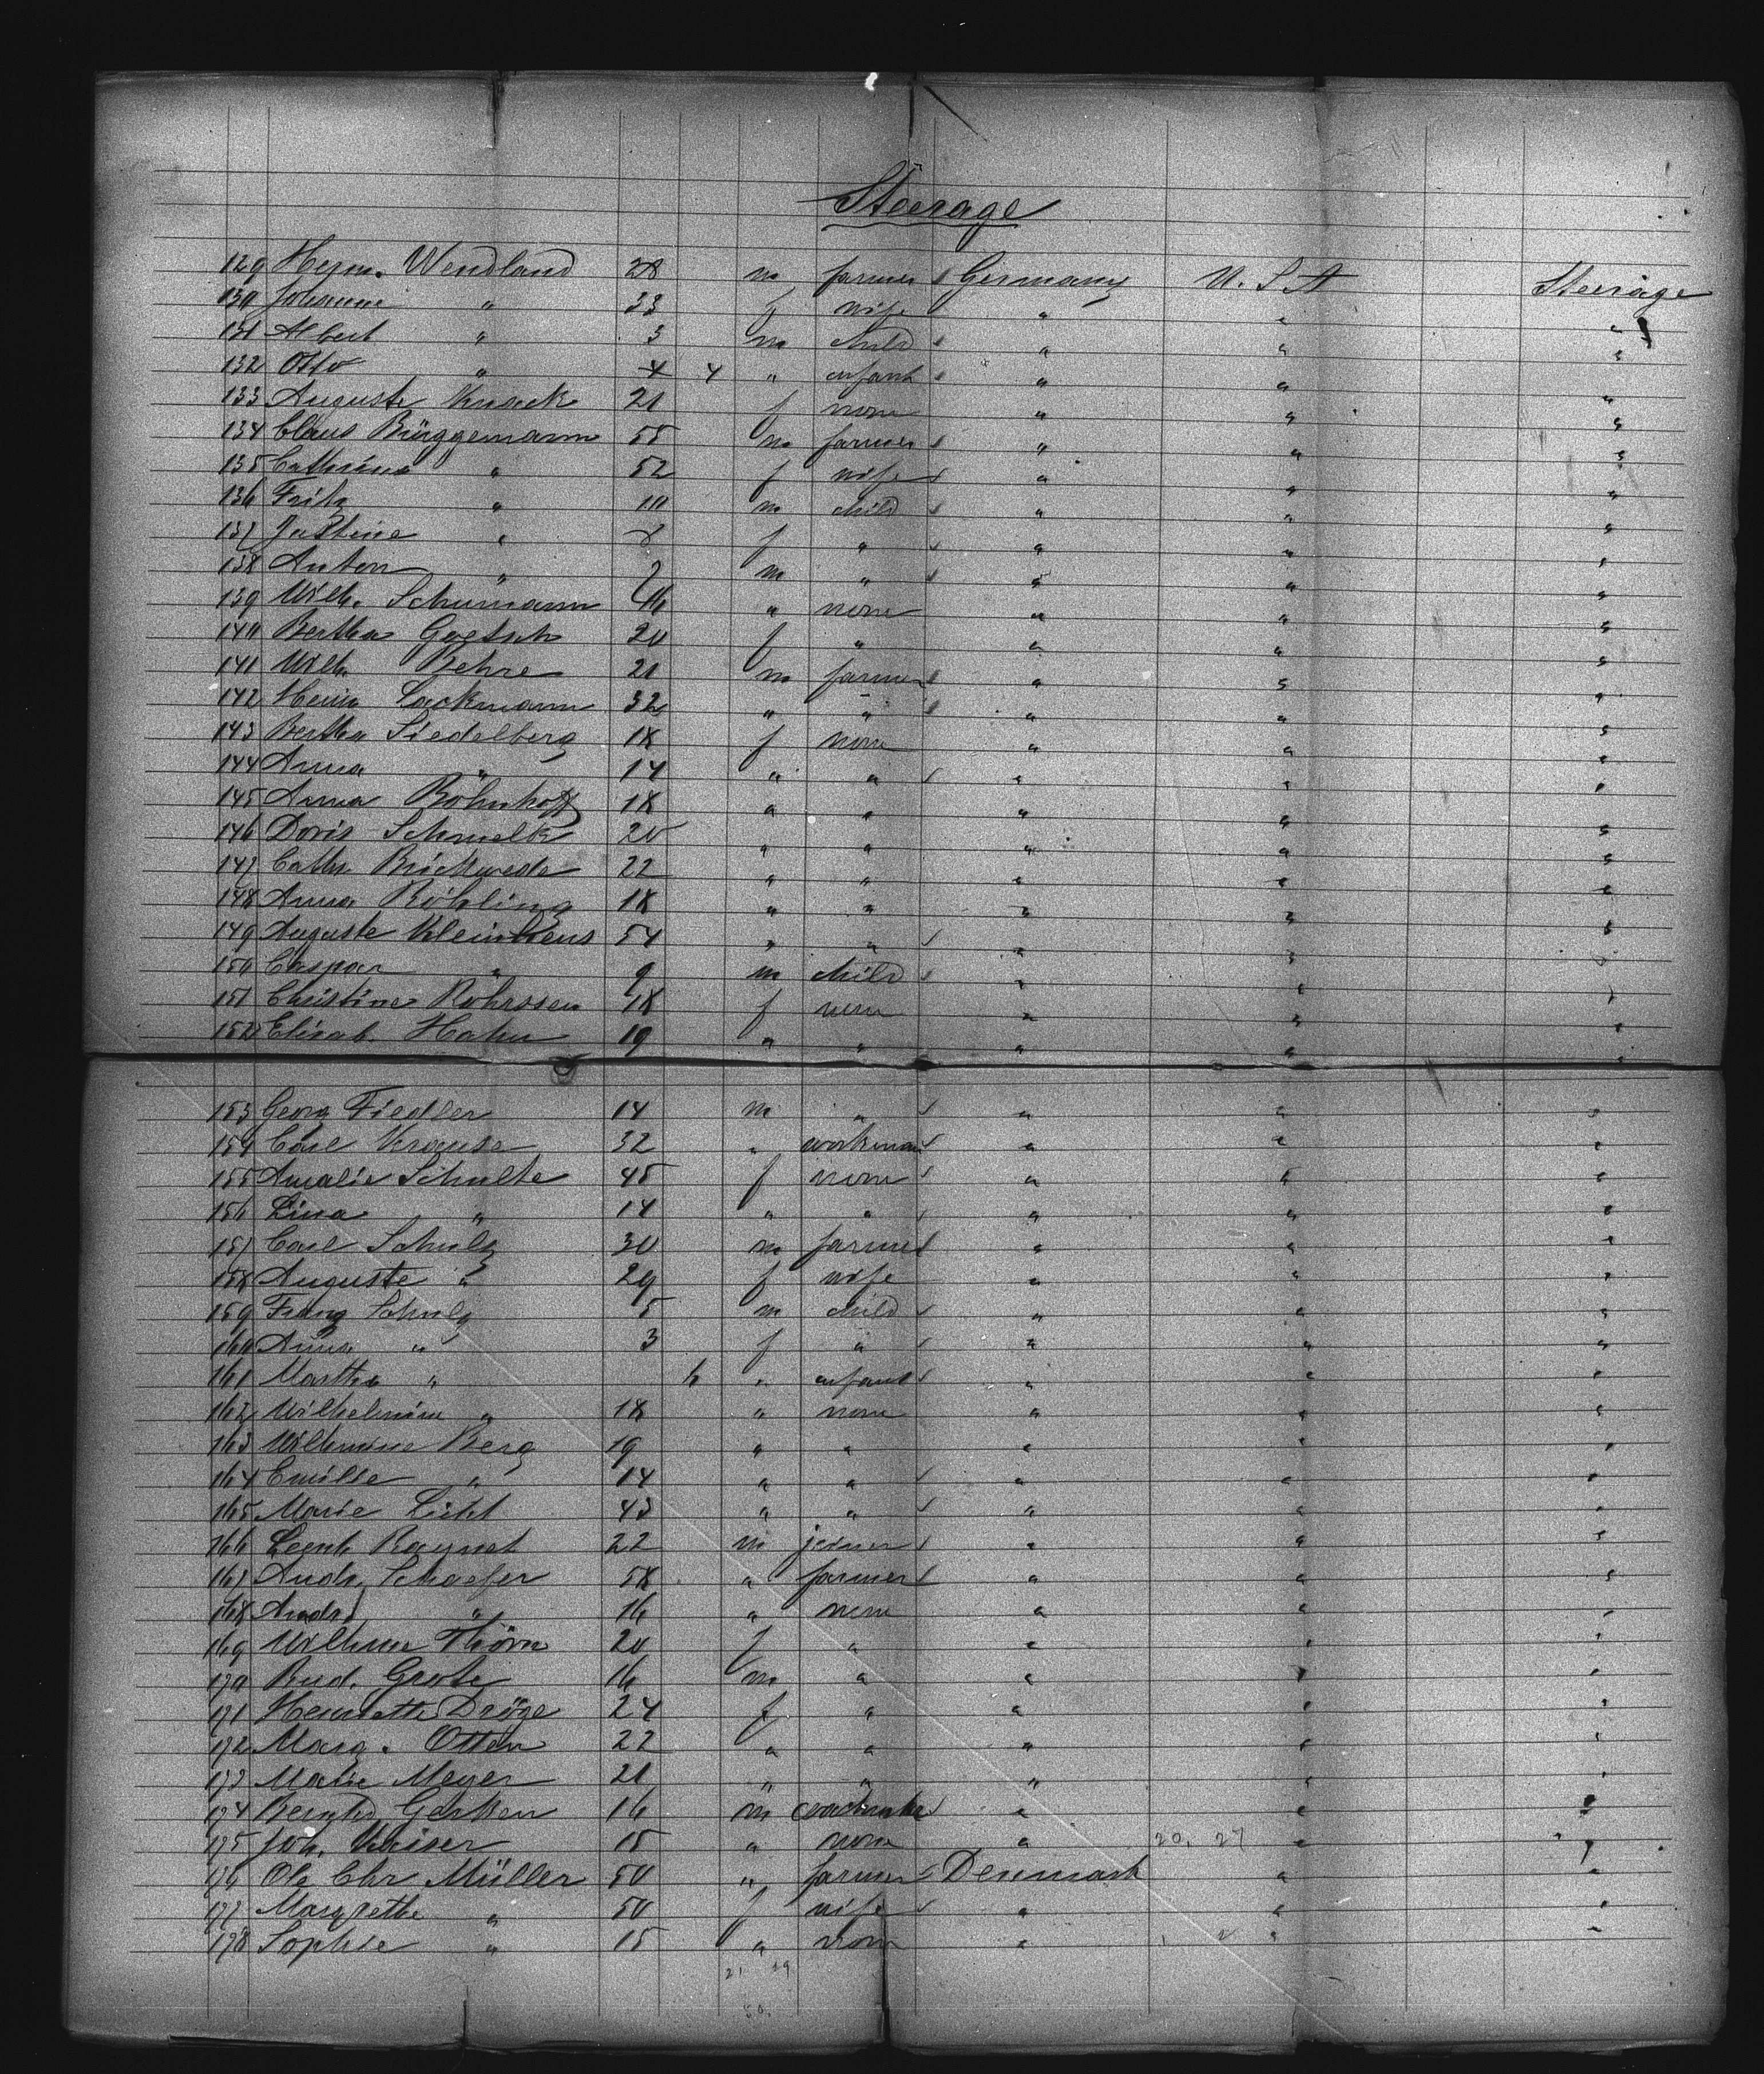 Steerage
129 Herm. Wendland 28 m farmer Germany U.S.A Steerage
130 Johanne " 33 f wife " " "
131 Albert " 3 m child " " "
132 Otto " 4 " infant " " "
133 Auguste Kusack 21 f none " " "
134 Claus Brüggemann 55 m farmer " " "
135 Cathrina " 52 f wife " " "
136 Fritz " 10 m child " " "
137 Justine " 8 f " " " "
138 Anton " m " " " "
139 Wilh. Schumann 46 " none " " "
140 Bertha Goetsch 20 f " " " "
141 Wilh. Behre 21 m farmer " " "
142 Heinr. Lackmann 32 " " " " "
143 Bertha Siedelberg 18 f none " " "
144 Anna " 14 " " " " "
145 Anna Bohnhoff 18 " " " " "
146 Doris Schmelk 20 " " " " "
147 Cath. Brickwede 22 " " " " "
148 Anna Röhling 18 " " " " "
149 Auguste Kleinhens 54 " " " " "
150 Caspar " 9 m child " " "
151 Christine Rohrssen 18 f none " " "
152 Elisab. Hahn 19 " " " " "
153 Georg Fiedler 14 m " " " "
154 Carl Krause 32 " workman " " "
155 Amalie Schulte 45 f none " " "
156 Lina " 14 " " " " "
157 Carl Schulz 30 m farmer " " "
158 Auguste " 29 f wife " " "
159 Franz Schulz 5 m child " " "
160 Anna " 3 f " " " "
161 Martha " 6 " infant " " "
162 Wilhelmine " 18 " none " " "
163 Wilhmine Berg 19 " " " " "
164 Emilie " 14 " " " " "
165 Marie Licht 43 " " " " "
166 22 m joiner " " "
167 Andr. Schaefer 58 " farmer " " "
168 Andr. " 16 " none " " "
169 Wilhme Thörn 20 f " " " "
170 Rud. Grote 16 m " " " "
171 Henriette Dröge 24 f " " " "
172 Marg. Otten 22 " " " " "
173 Marie Meyer 21 " " " " "
174 Gerken 16 m " " "
175 Joh. Kaiser 15 " none " 20. 27 " "
176 Ole Chr Müller 50 " farmer Denmark " "
177 Margrethe " 50 f wife " " "
178 Sophie " 15 " none " " "
21 29
50.